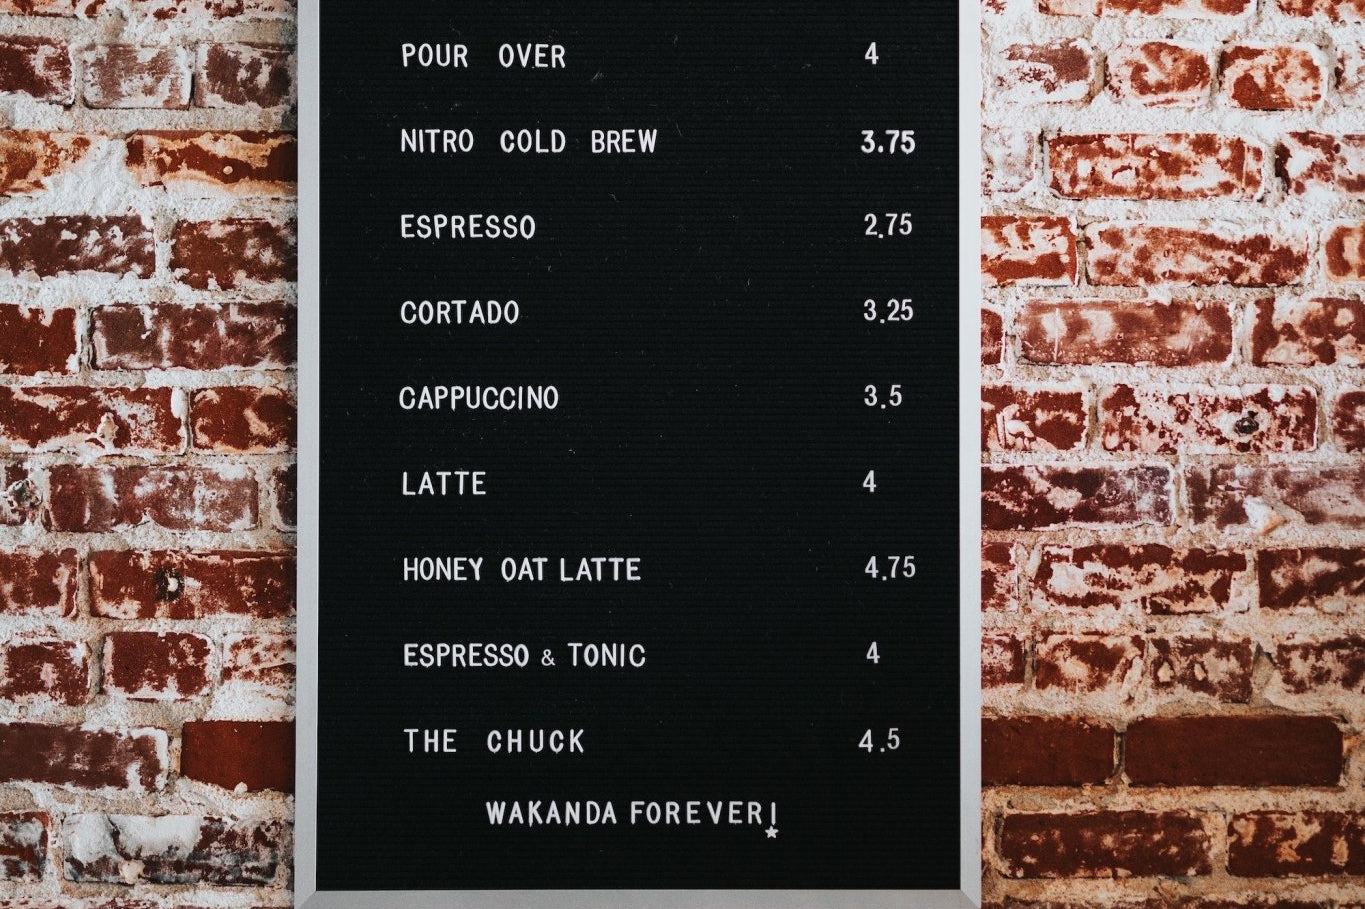 POUR OVER 4
NITRO COLD BREW 3.75
ESPRESSO 2.75
CORTADO 3.25
CAPPUCCINO 3.5
LATTE 4
HONEY OAT LATTE 4.75
ESPRESSO & TONIC 4
THE CHUCK 4.5
WAKANDA FOREVER!